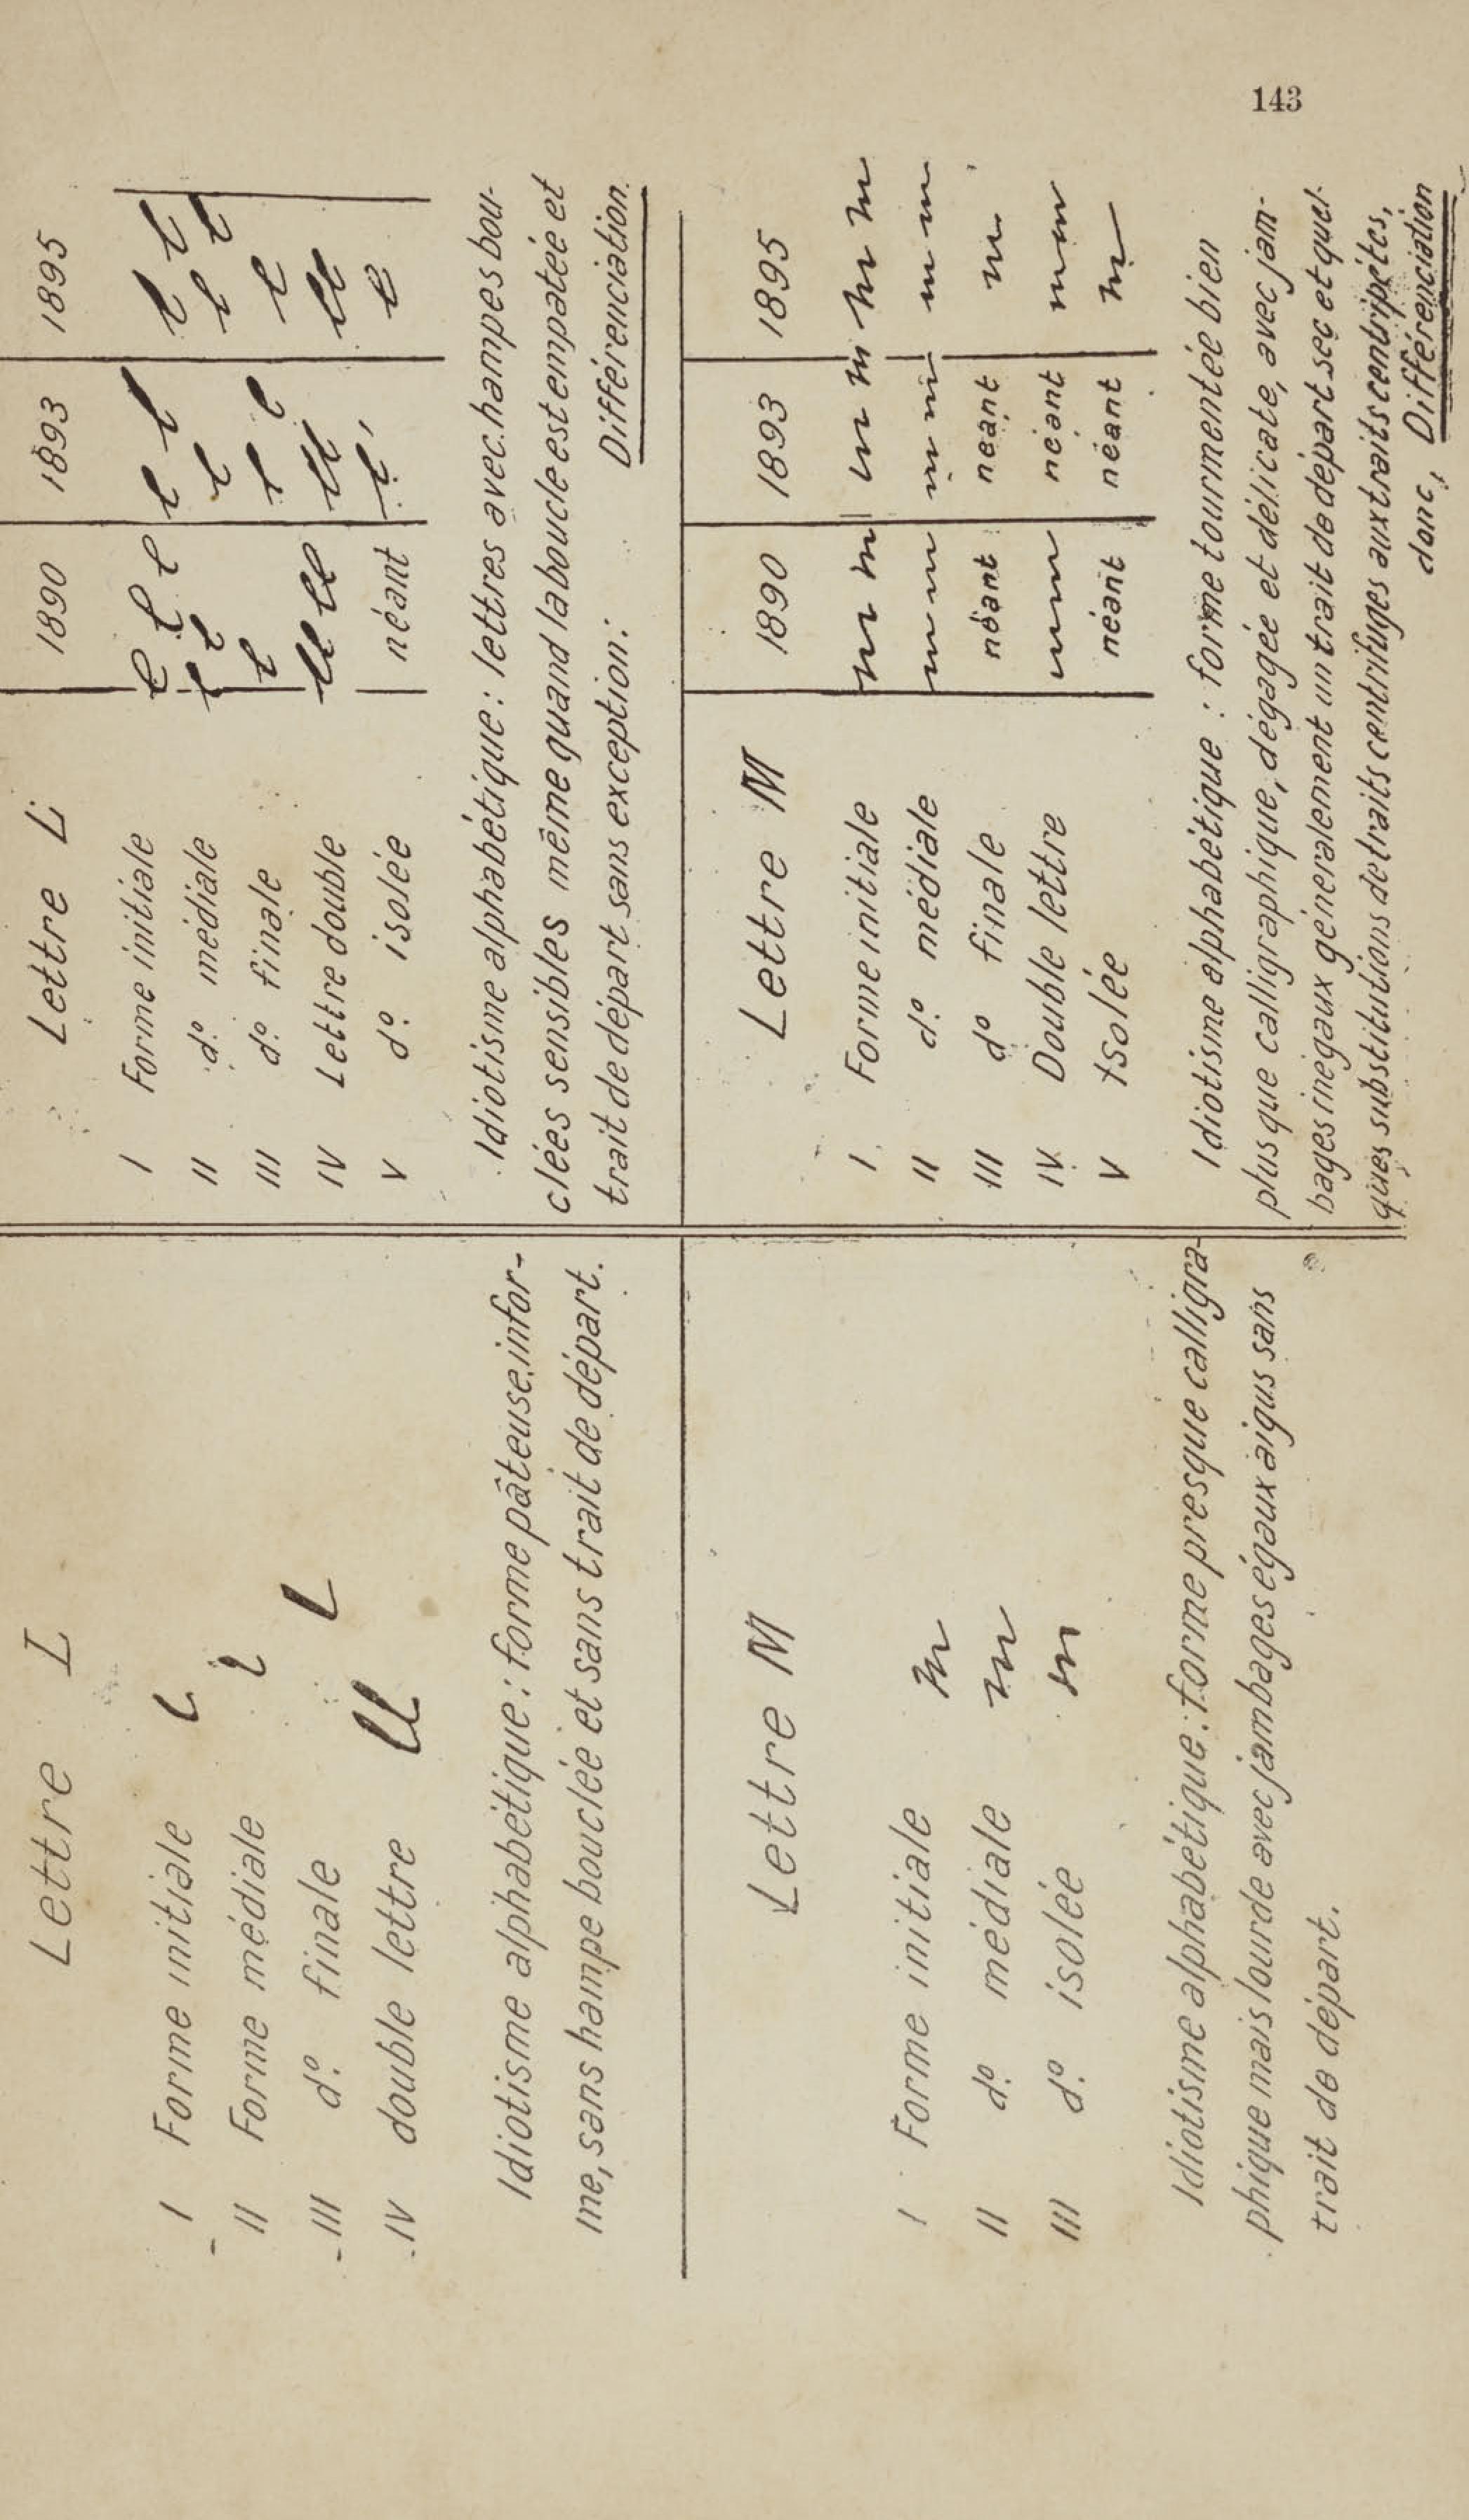 143
Lettre L
I Forme initiale
II Forme médiale
III dº finale
IV double lettre
Idiotisme alphabétique: forme pâteuse, infor-
me, sans hampe bouclée et sans trait de départ.
Lettre L
1890 1893 1895
I Forme initiale l l l l l l l
II dº médiale l l l l l
III dº finale l l l l
IV Lettre double ll ll ll ll
V dº isolée néant l l
Idiotisme alphabétique: lettres avec hampes bou-
clées sensibles même quand la boucle est empatée et
trait de départ sans exception:
Différenciation.
Lettre M
I Forme initiale m
II dº médiale m
III dº isolée m
Idiotisme alphabétique: forme presque calligra-
phique mais lourde avec jambages égaux aigus sans
trait de départ.
Lettre M
1890 1893 1895
I Forme initiale m m m m m m
II dº médiale m m m m m m
III dº finale néant néant m m
IV Double lettre mm néant mm
V Isolée néant néant m
Idiotisme alphabétique: forme tourmentée bien
plus que calligraphique, dégagée et délicate, avec jam-
bages inégaux généralement un trait de départ sec et quel-
ques substitutions de traits centrifuges aux traits centripètes,
donc, Différenciation